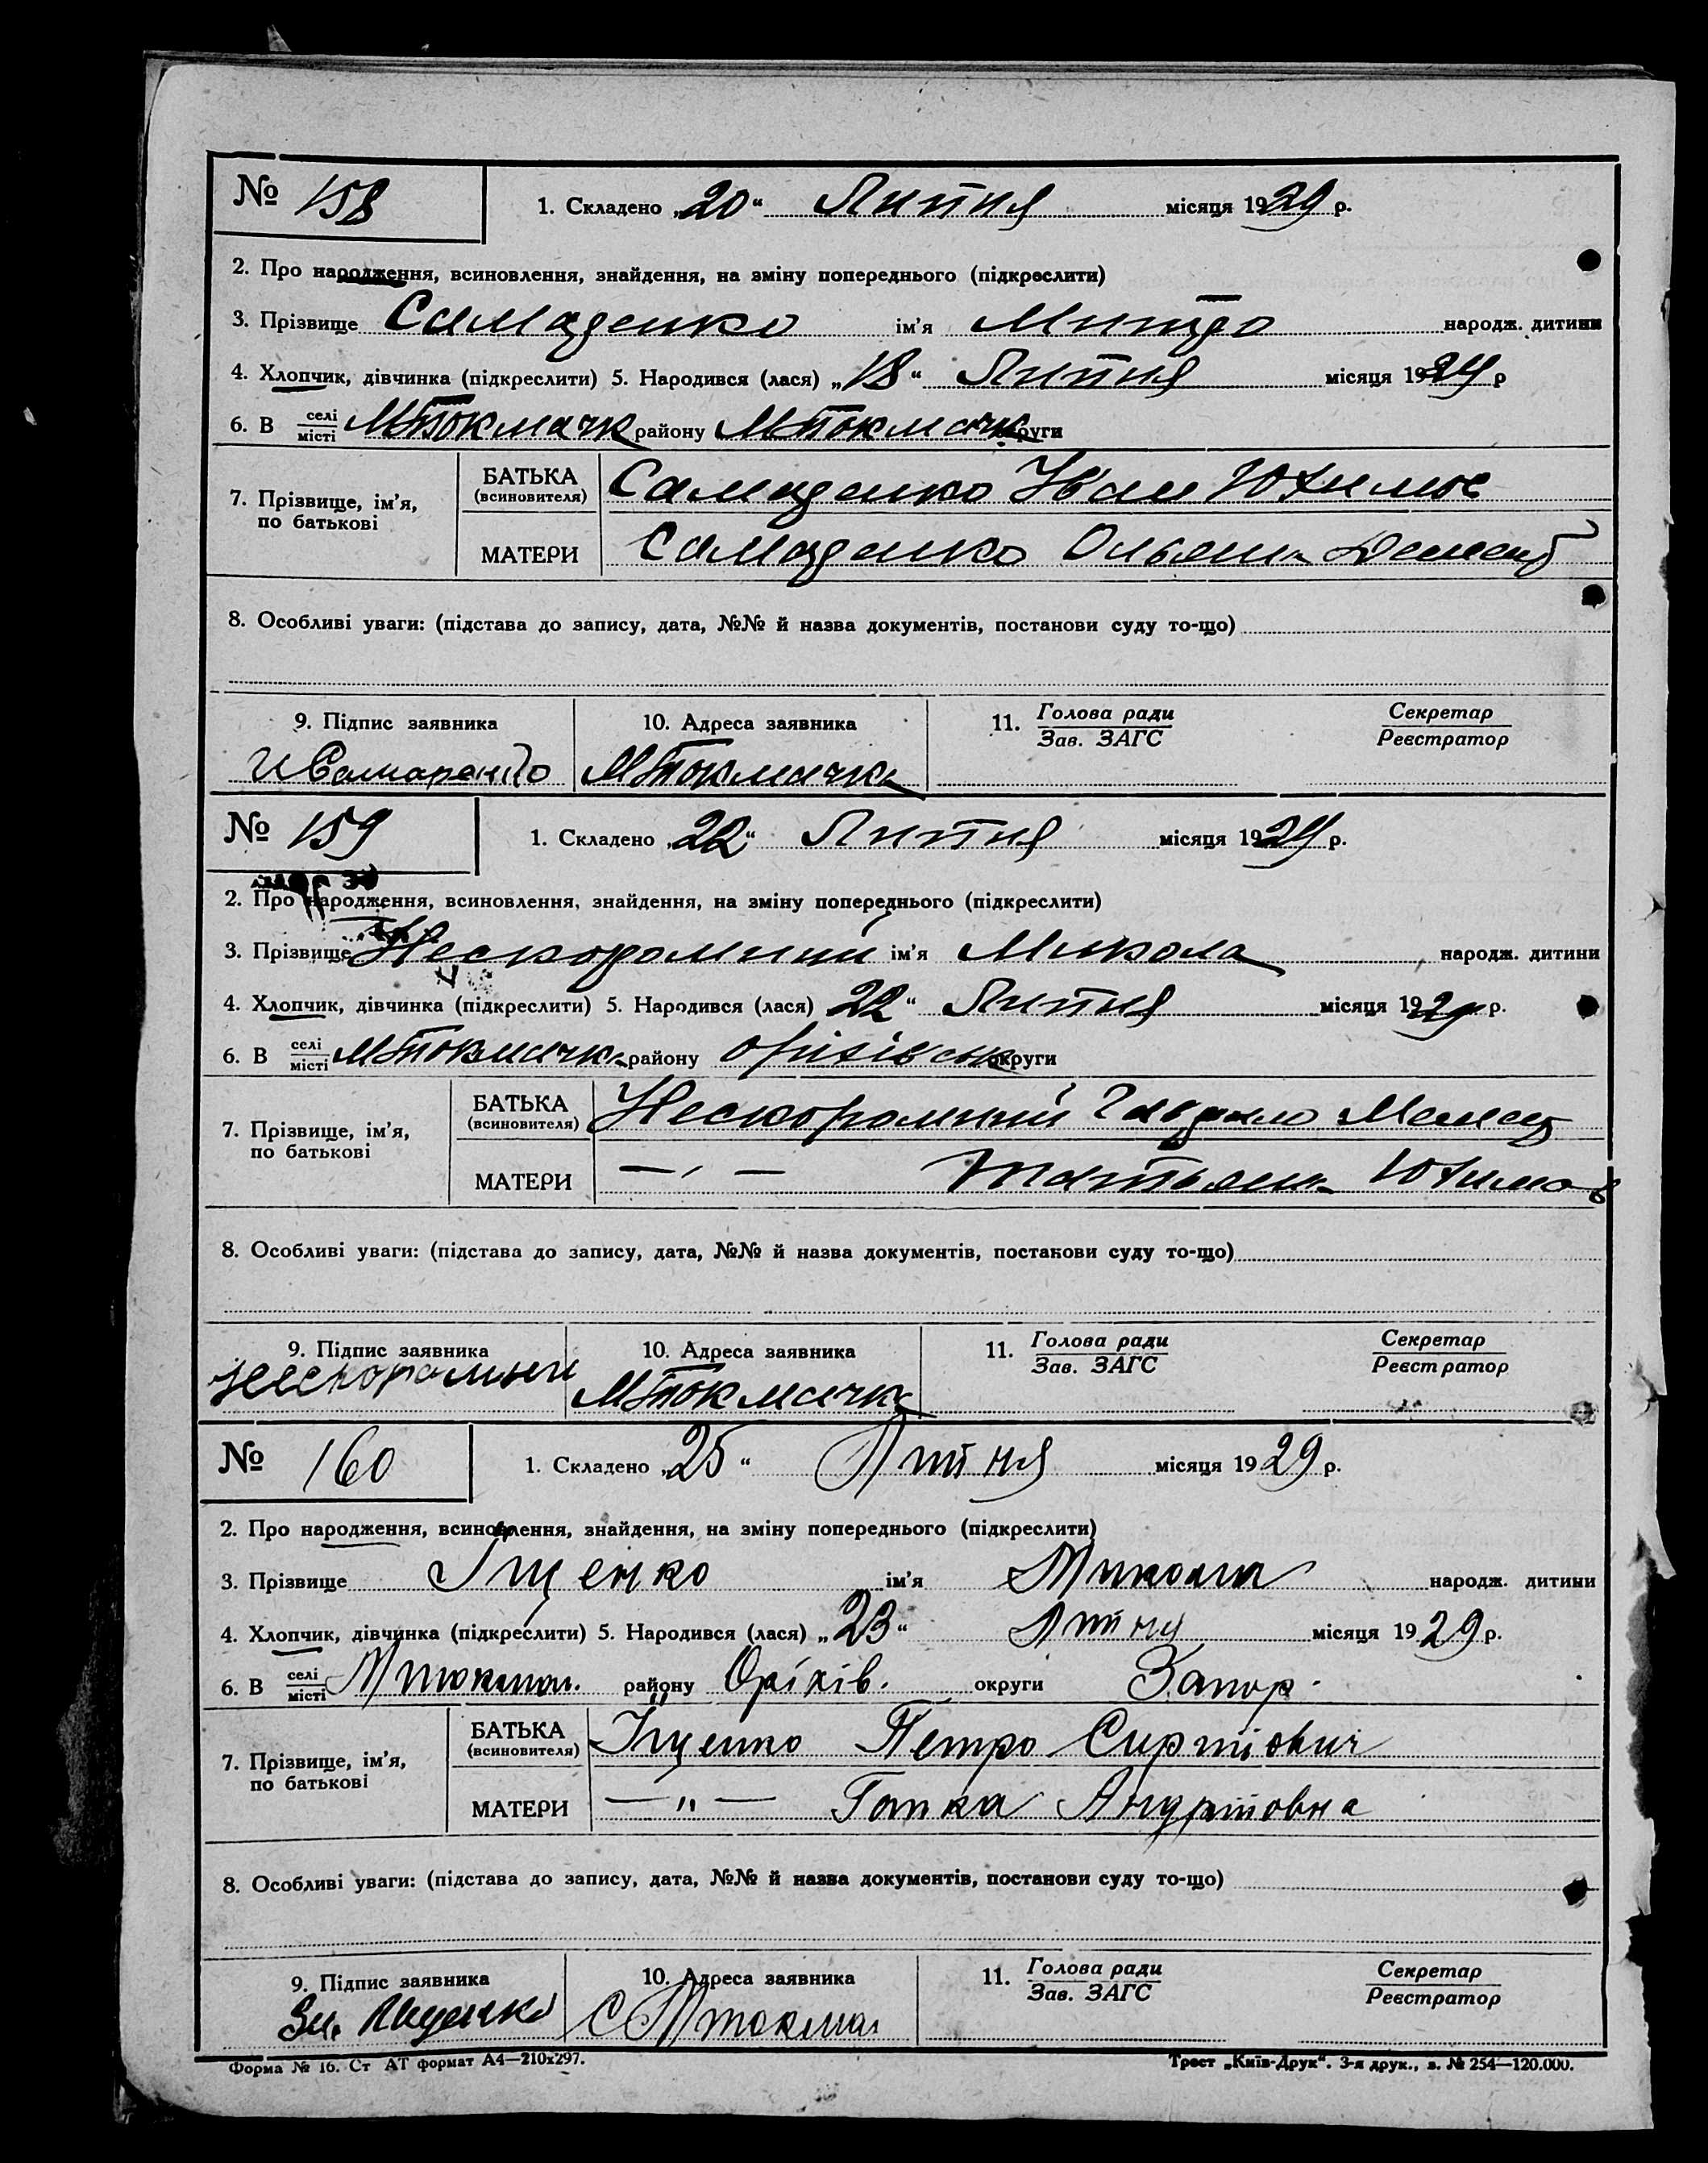 № 158 1. Складено „20“ Липня місяця 1929 р.
2. Про народження, всиновлення, знайдення, на зміну попереднього (підкреслити)
3. Прізвище ім'я Митро народж. дитини
4. Хлопчик, дівчинка (підкреслити) 5. Народився (лася) „18“ Липня місяця 1929 р
6. В селі/місті МТокмачк району МТокмачк округи
7. Прізвище, ім'я, по батькові
БАТЬКА (всиновителя) Іван Юхимов
МАТЕРИ Ольяна
8. Особливі уваги: (підстава до запису, дата, №№ й назва документів, постанови суду то-що)
9. Підпис заявника 10. Адреса заявника 11. Голова ради/Зав. ЗАГС Секретар/Реєстратор
МТокмачка
№ 159 1. Складено „22“ Липня місяця 1929 р.
2. Про народження, всиновлення, знайдення, на зміну попереднього (підкреслити)
3. Прізвище Нескоромний ім'я Микола народж. дитини
4. Хлопчик, дівчинка (підкреслити) 5. Народився (лася) 22“ Липня місяця 1929 р.
6. В селі/місті МТокмачка району Оріхівськ округи
7. Прізвище, ім'я, по батькові
БАТЬКА (всиновителя) Нескоромний Гаврило
МАТЕРИ —,,— Татьяна Юхимов
8. Особливі уваги: (підстава до запису, дата, №№ й назва документів, постанови суду то-що)
9. Підпис заявника 10. Адреса заявника 11. Голова ради/Зав. ЗАГС Секретар/Реєстратор
МТокмачка
№ 160 1. Складено „25“ Липня місяця 1929 р.
2. Про народження, всиновлення, знайдення, на зміну попереднього (підкреслити)
3. Прізвище Іщенко ім'я Микола народж. дитини
4. Хлопчик, дівчинка (підкреслити) 5. Народився (лася) „23“ Липня місяця 1929 р.
6. В селі/місті МТокмач. району Оріхів. округи Запор.
7. Прізвище, ім'я, по батькові
БАТЬКА (всиновителя) Іщенко Петро
МАТЕРИ —"— Гапка Андріївна
8. Особливі уваги: (підстава до запису, дата, №№ й назва документів, постанови суду то-що)
9. Підпис заявника 10. Адреса заявника 11. Голова ради/Зав. ЗАГС Секретар/Реєстратор
С МТокмач
Форма № 16. Ст АТ формат А4—210х297. Трест „Київ-Друк“. 3-я друк., з. № 254—120.000.